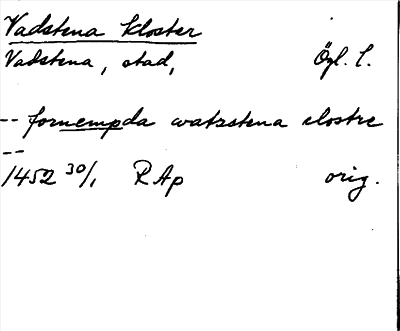 Vadstena kloster
Vadstena, stad, Ögl. l.
-- fornempda watzstena clostre
--
1452 30/1 RAp orig.